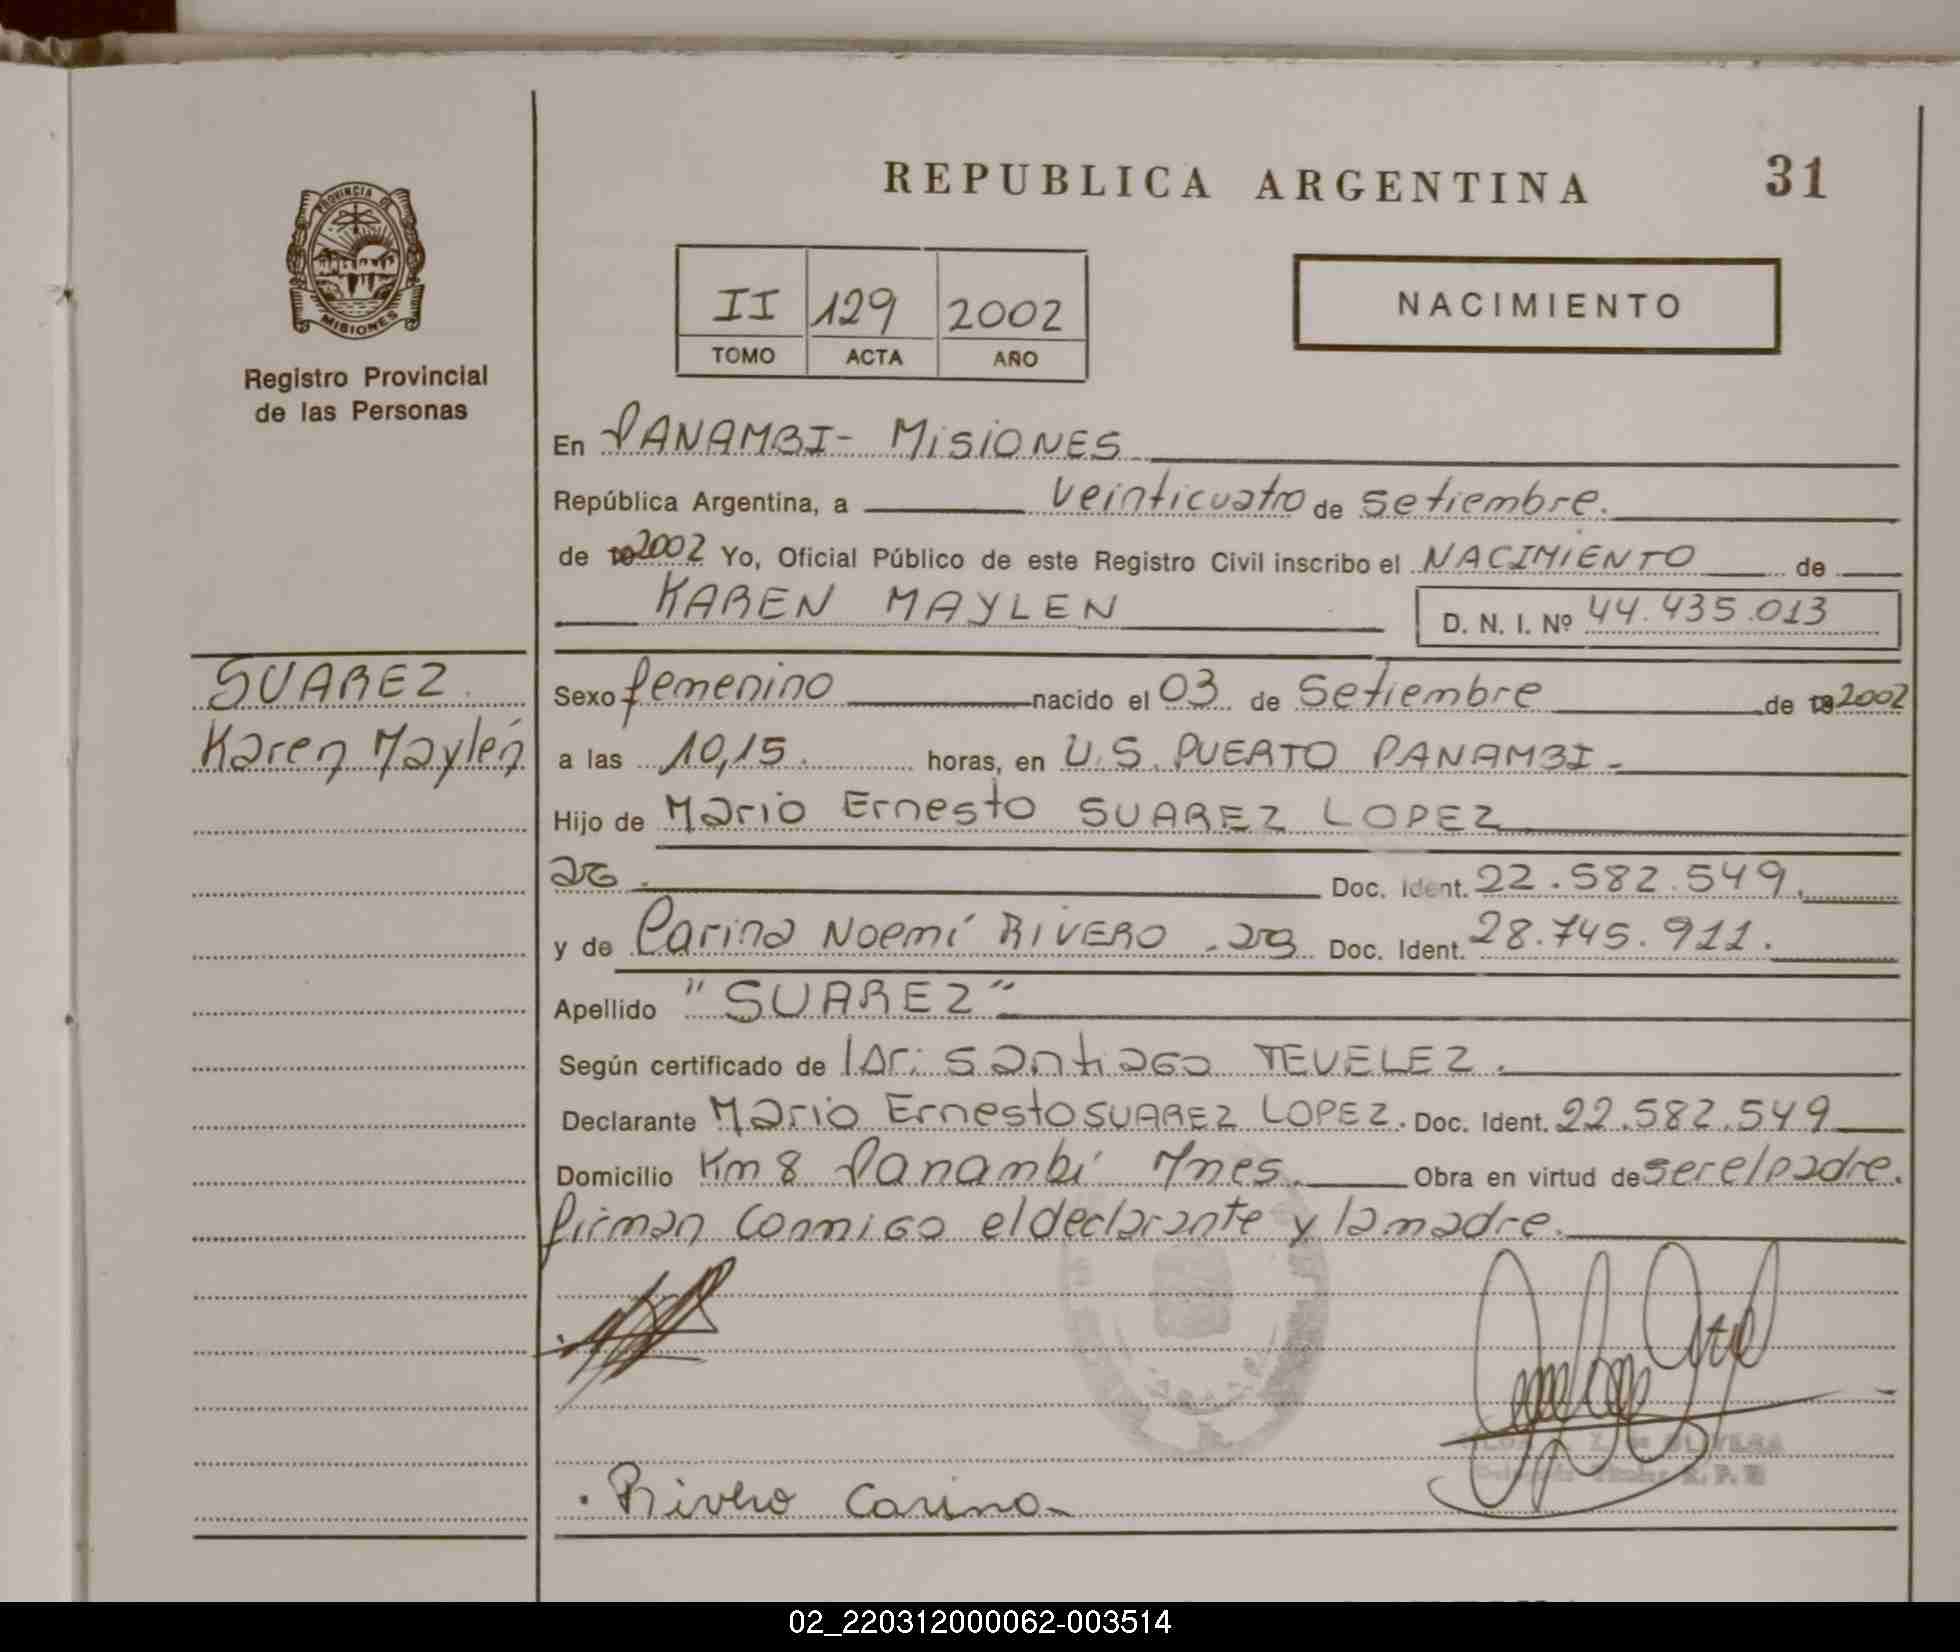 REPUBLICA ARGENTINA
31
PROVINCIA DE
MISIONES
Registro Provincial
de las Personas
II 129 2002
TOMO ACTA AÑO
NACIMIENTO
En PANAMBI- MisiONES
República Argentina, a veinticuatro de setiembre.
de 2002 Yo, Oficial Público de este Registro Civil inscribo el NACIMIENTO de
KAREN MAYLEN D. N. I. Nº 44.435.013
SUAREZ
Karen Maylen
Sexo femenino nacido el 03 de Setiembre de 2002
a las 10,15. horas, en U.S. PUERTO PANAMBI-
Hijo de Mario Ernesto SUAREZ LOPEZ
Doc. Ident. 22.582.549.
y de Carina Noemí RIVERO Doc. Ident. 28.745.911.
Apellido "SUAREZ"
Según certificado de Santiago TEVELEZ.
Declarante Mario Ernesto SUAREZ LOPEZ. Doc. Ident. 22.582.549
Domicilio Km 8 Panambi Mnes. Obra en virtud de ser el padre.
firman conmigo el declarante y la madre.
OLIVERA
Rivero Carina
02_220312000062-003514